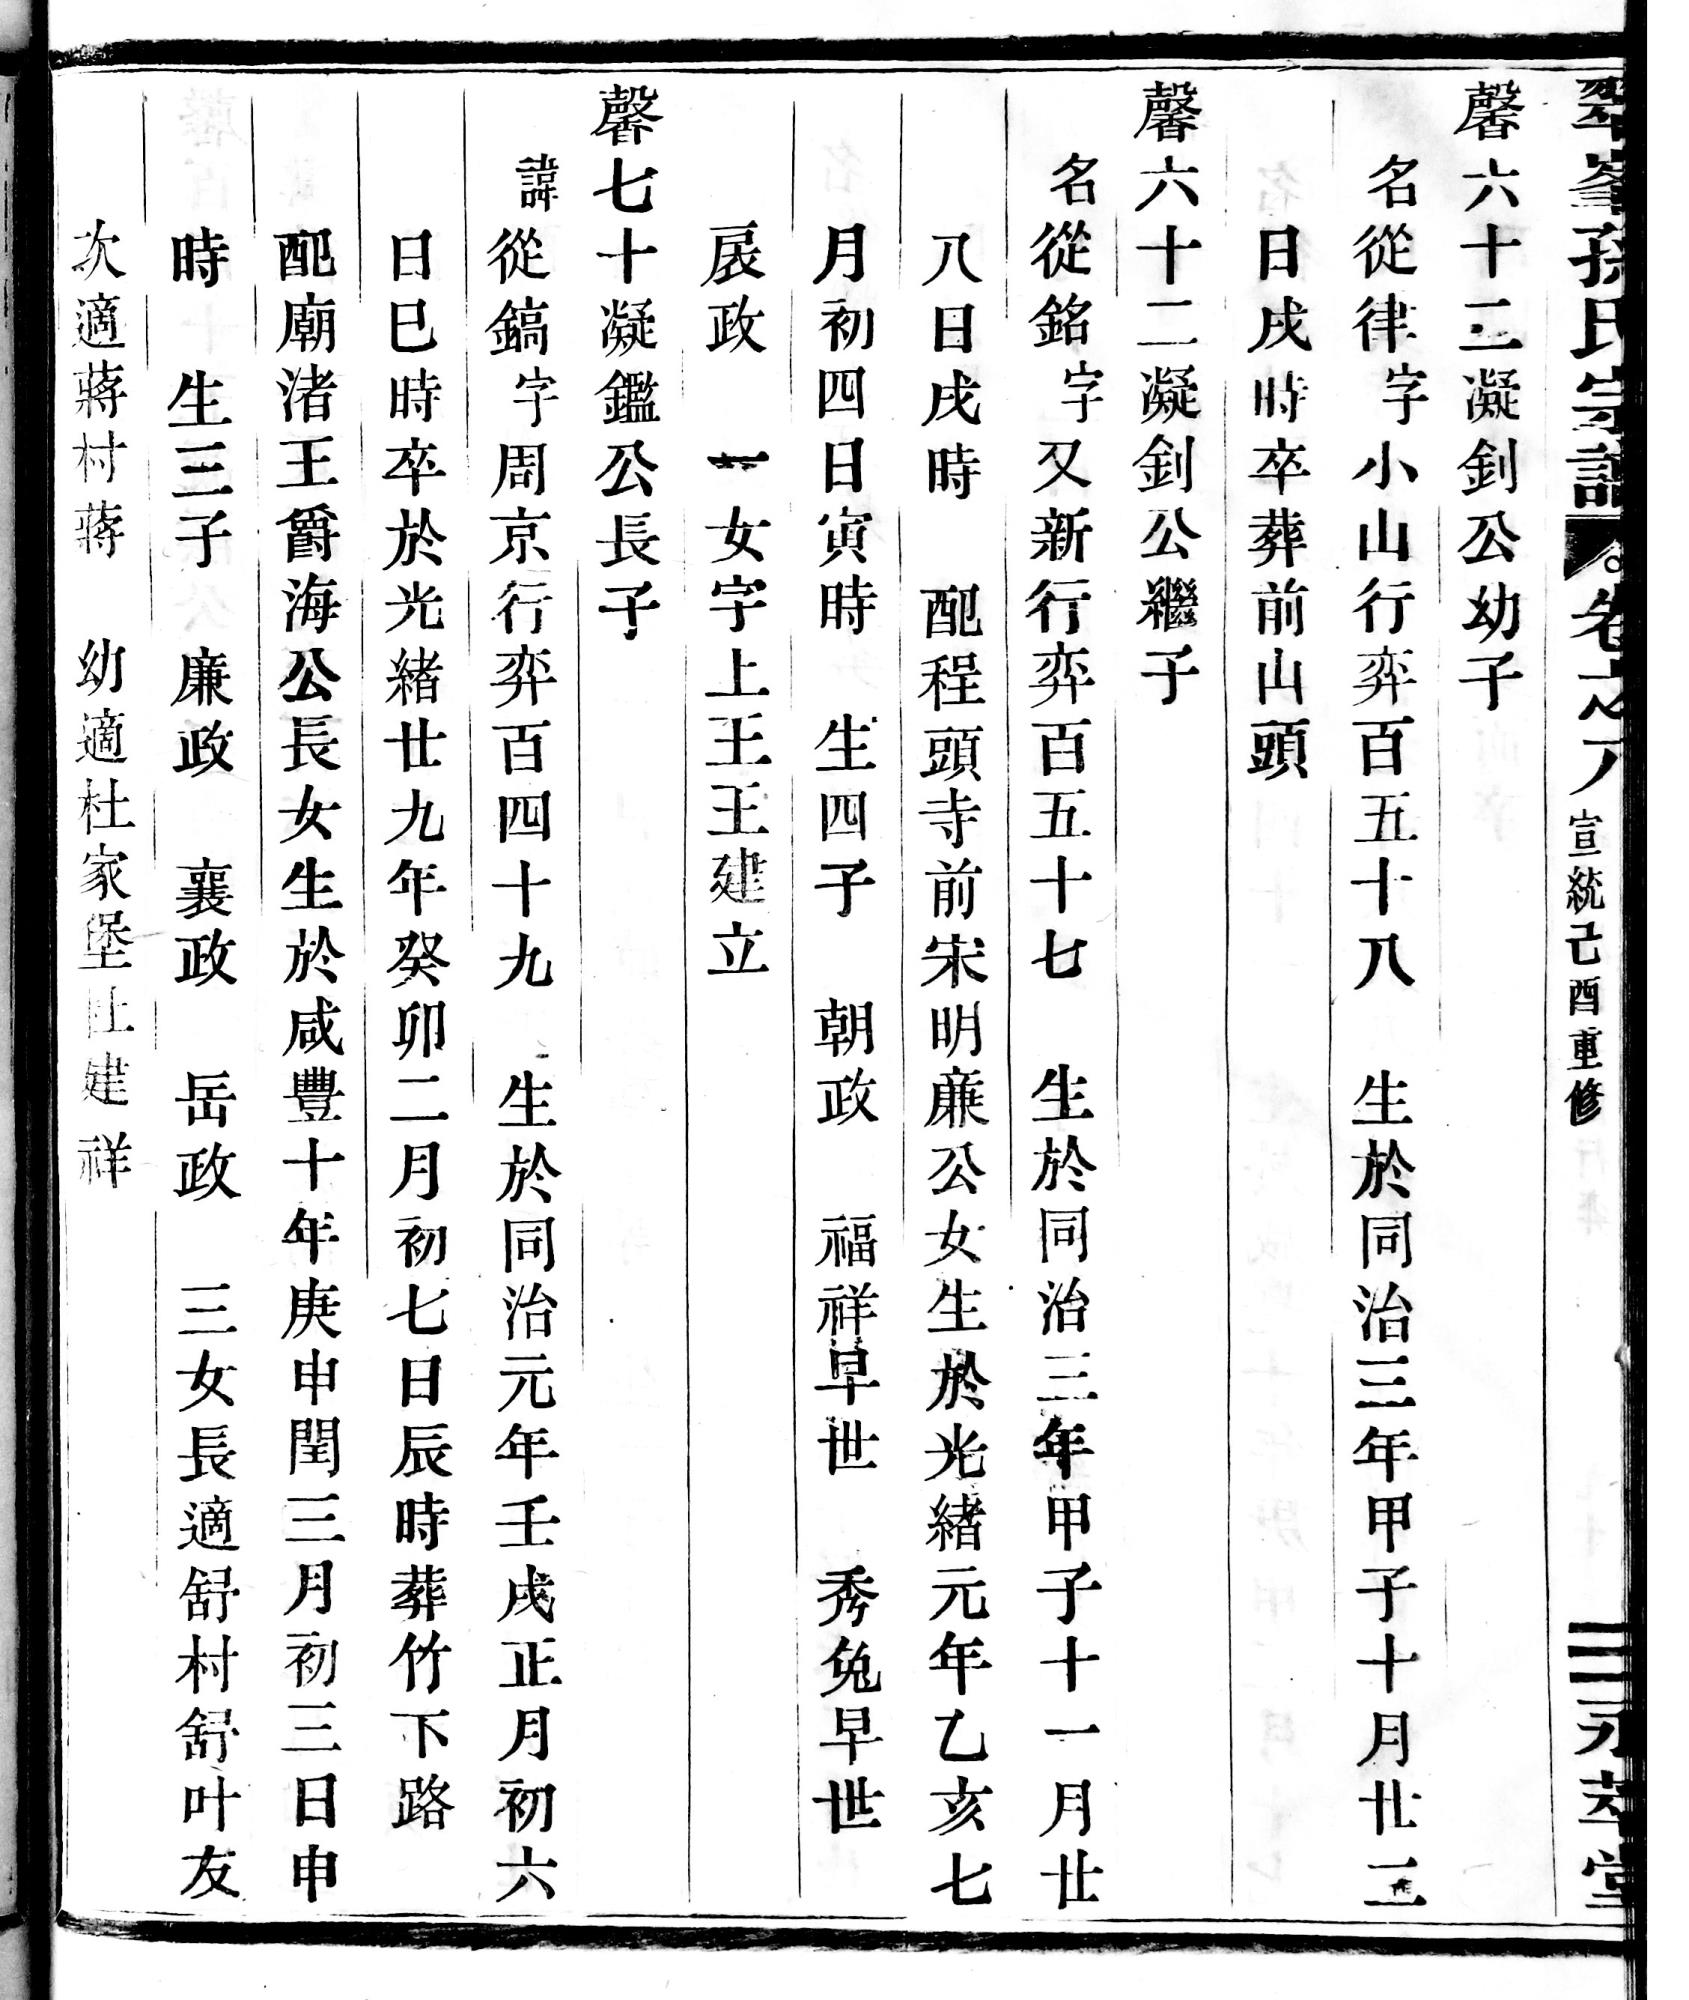 翠峯孫氏宗譜 卷之八 宣統己酉重修 二 永萃堂
馨六十二凝釗公幼子
名從律字小山行弈百五十八 生於同治三年甲子十月廿二
日戌時卒葬前山頭
馨六十二凝釗公繼子
名從銘字又新行弈百五十七 生於同治三年甲子十一月廿
八日戌時 配程頭寺前宋明廉公女生於光緒元年乙亥七
月初四日寅時 生四子 朝政 福祥早世 秀兔早世
扆政 一女字上王王建立
馨七十凝鑑公長子
諱從鎬字周京行弈百四十九 生於同治元年壬戌正月初六
日巳時卒於光緒廿九年癸卯二月初七日辰時葬竹下路
配廟渚王爵海公長女生於咸豐十年庚申閏三月初三日申
時 生三子 廉政 襄政 岳政 三女長適舒村舒叶友
次適蔣村蔣 幼適杜家堡杜建祥